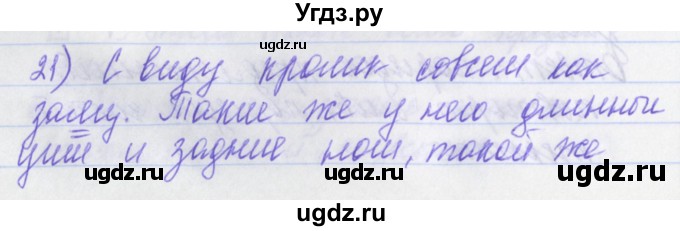 Угдз.ру
21) С виду кролик совсем как
заяц. Такие же у него длинные
уши и задние ноги, такой же
ugdz.ru ugdz.ru ugdz.ru
ugdz.ru
ugdz.ru